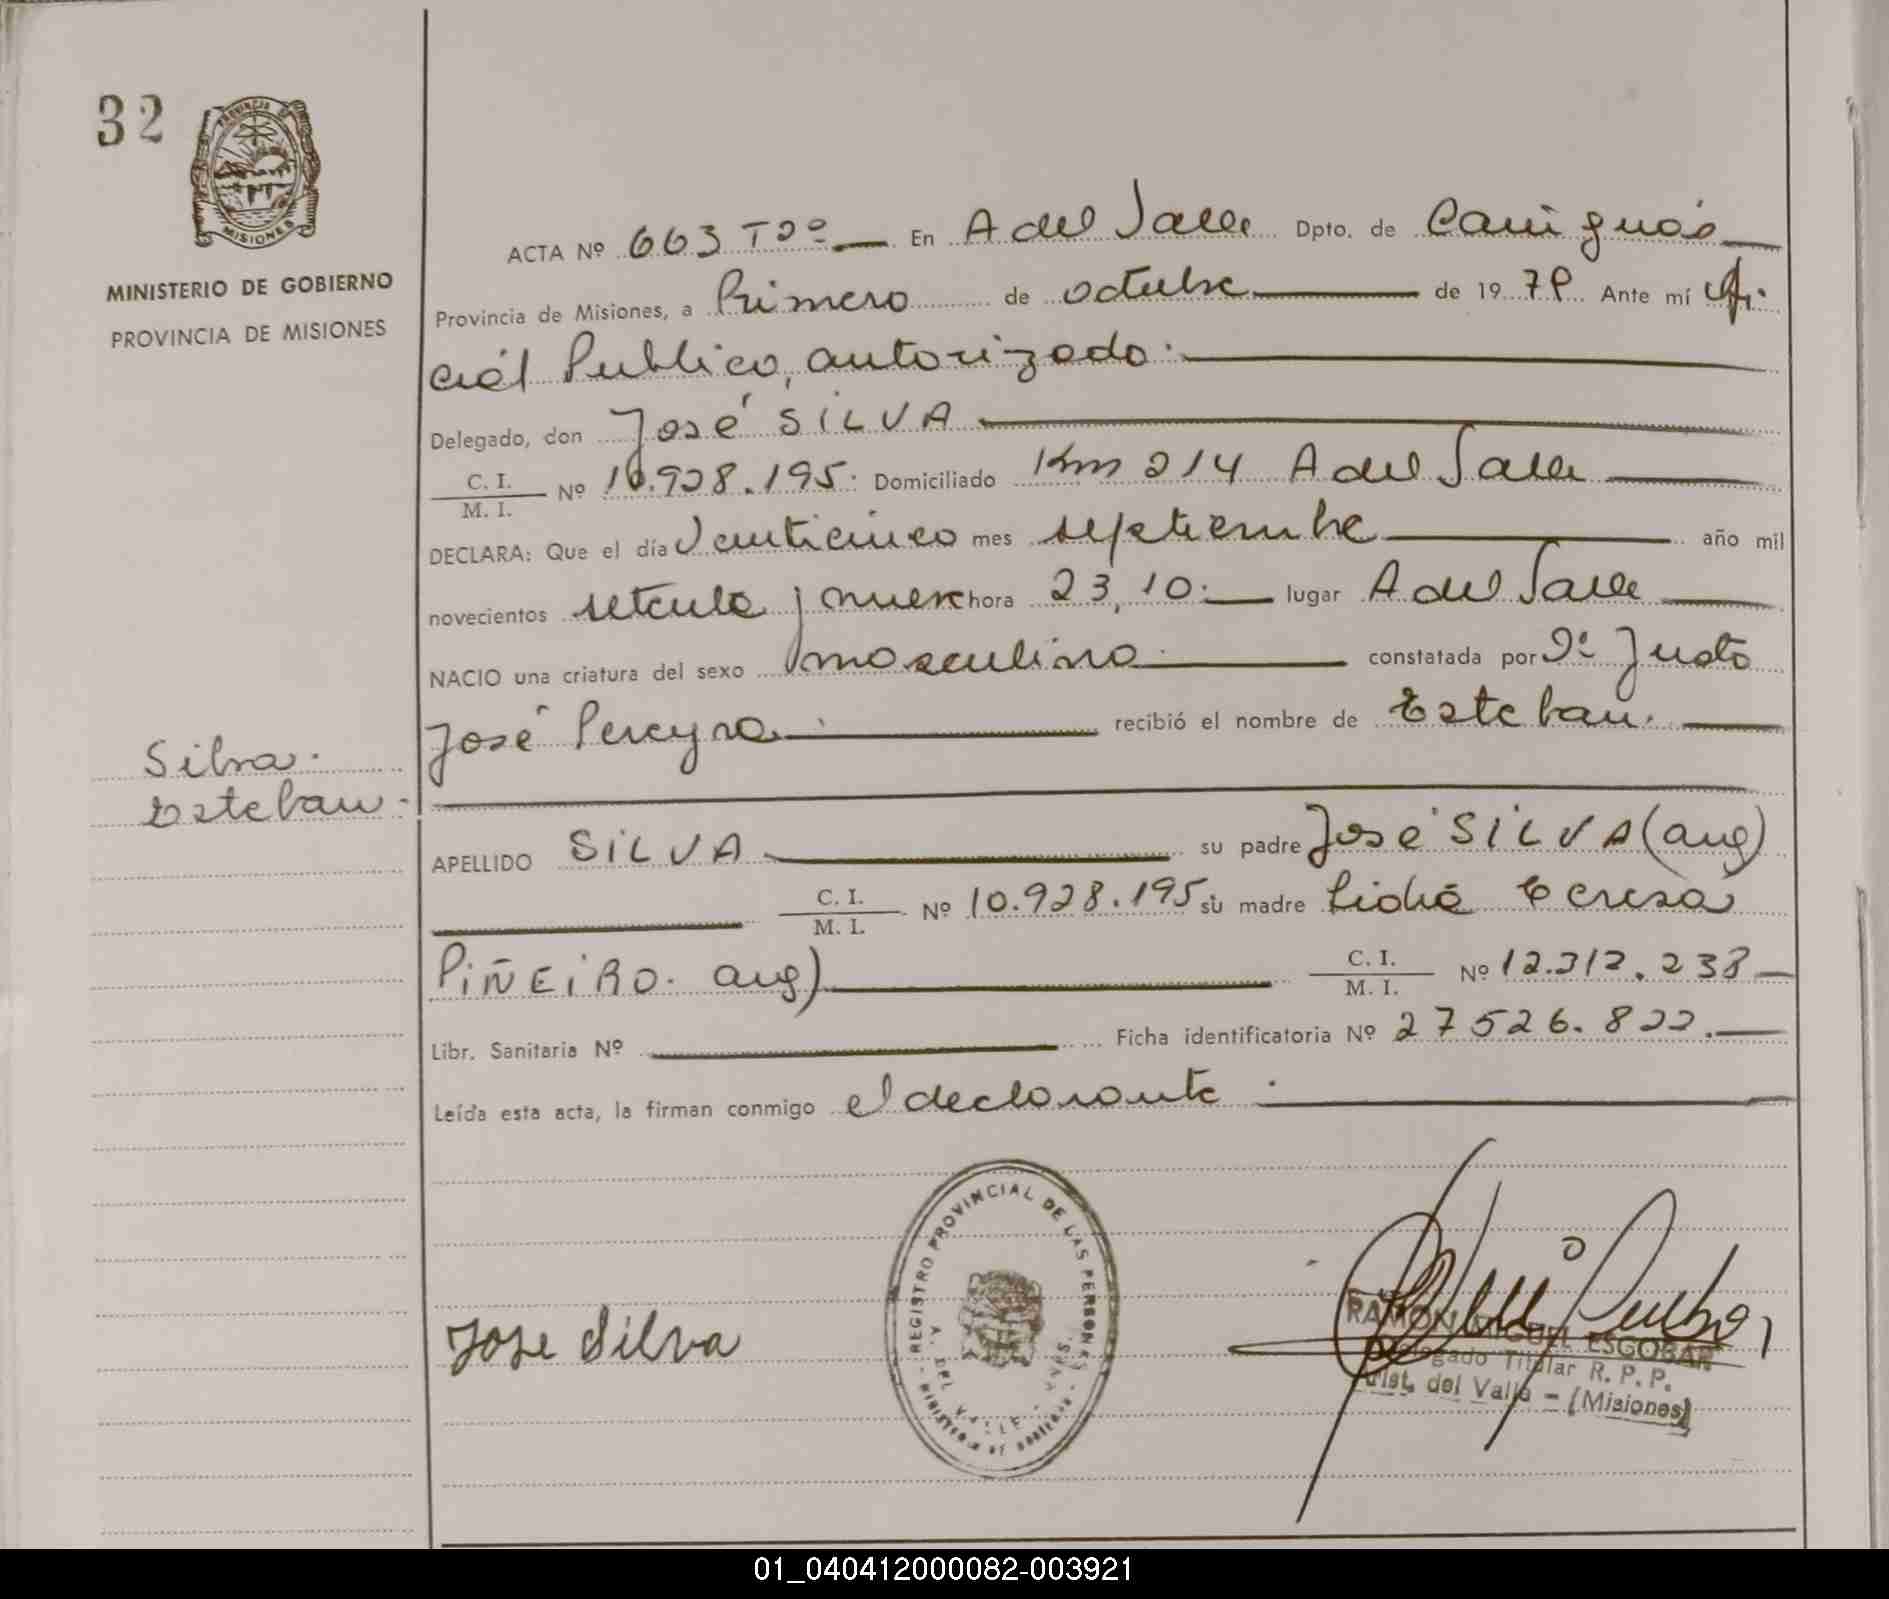 32
PROVINCIA DE
MISIONES
MINISTERIO DE GOBIERNO
PROVINCIA DE MISIONES
ACTA Nº 663 Tº 2º En A del Valle Dpto. de Cainguás
Provincia de Misiones, a Primero de octubre de 1979 Ante mí Ofi-
cial Publico, autorizado.
Delegado, don José SILVA
C. I.
M. I. Nº 10.928.195. Domiciliado Km 214 A del Valle
DECLARA: Que el día Veinticinco mes septiembre año mil
novecientos setenta y nueve hora 23,10. lugar A del Valle
NACIO una criatura del sexo masculino constatada por Justo
José Pereyra recibió el nombre de Esteban.
Silva.
Esteban.
APELLIDO SILVA su padre José SILVA (arg)
C. I.
M. I. Nº 10.928.195 su madre Lidia Teresa
PIÑEIRO. arg) C. I.
M. I. Nº 12.312.238
Libr. Sanitaria Nº Ficha identificatoria Nº 27526.822.
Leída esta acta, la firman conmigo el declarante.
REGISTRO PROVINCIAL DE LAS PERSONAS
A. DEL VALLE - MNES.
MINISTERIO DE GOBIERNO
Jose Silva
RAMON MIGUEL ESCOBAR
Delegado Titular R. P. P.
Arist. del Valle - (Misiones)
01_040412000082-003921